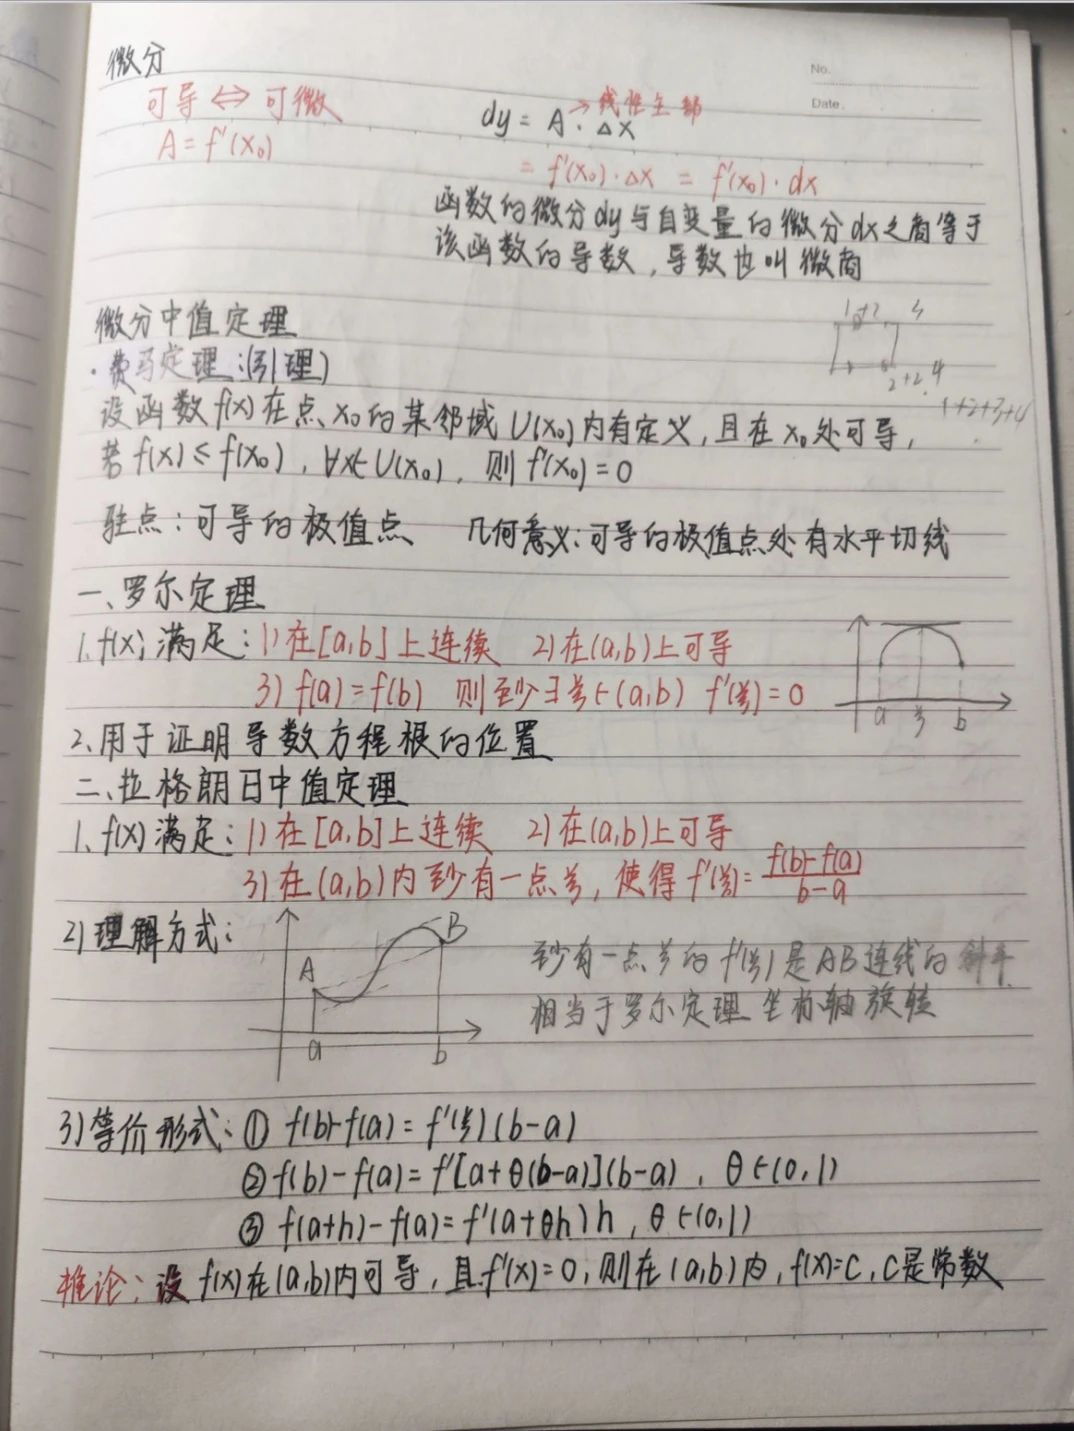 No.
Date.
微分
可导 ⇔ 可微
A = f'(x₀)
dy = A · Δx → 线性主部
= f'(x₀)·Δx = f'(x₀)·dx
函数的微分dy与自变量的微分dx之商等于
该函数的导数，导数也叫微商
微分中值定理
·费马定理：(引理)
设函数f(x)在点x₀的某邻域U(x₀)内有定义，且在x₀处可导，
若f(x)≤f(x₀)，∀x∈U(x₀)，则f'(x₀)=0
1+2+3+4
驻点：可导的极值点 几何意义：可导的极值点处有水平切线
一、罗尔定理
1、f(x)满足：1)在[a,b]上连续 2)在(a,b)上可导
3) f(a)=f(b) 则至少∃ξ∈(a,b) f'(ξ)=0
a ξ b
2、用于证明导数方程根的位置
二、拉格朗日中值定理
1、f(x)满足：1)在[a,b]上连续 2)在(a,b)上可导
3)在(a,b)内至少有一点ξ，使得f'(ξ)=\frac{f(b)-f(a)}{b-a}
2)理解方式：
A B
a b
至少有一点ξ的f'(ξ)是AB连线的斜率
相当于罗尔定理坐标轴旋转
3)等价形式：① f(b)-f(a)=f'(ξ)(b-a)
② f(b)-f(a)=f'[a+θ(b-a)](b-a)，θ∈(0,1)
③ f(a+h)-f(a)=f'(a+θh)h，θ∈(0,1)
推论：设f(x)在(a,b)内可导，且f'(x)=0，则在(a,b)内，f(x)=C，C是常数